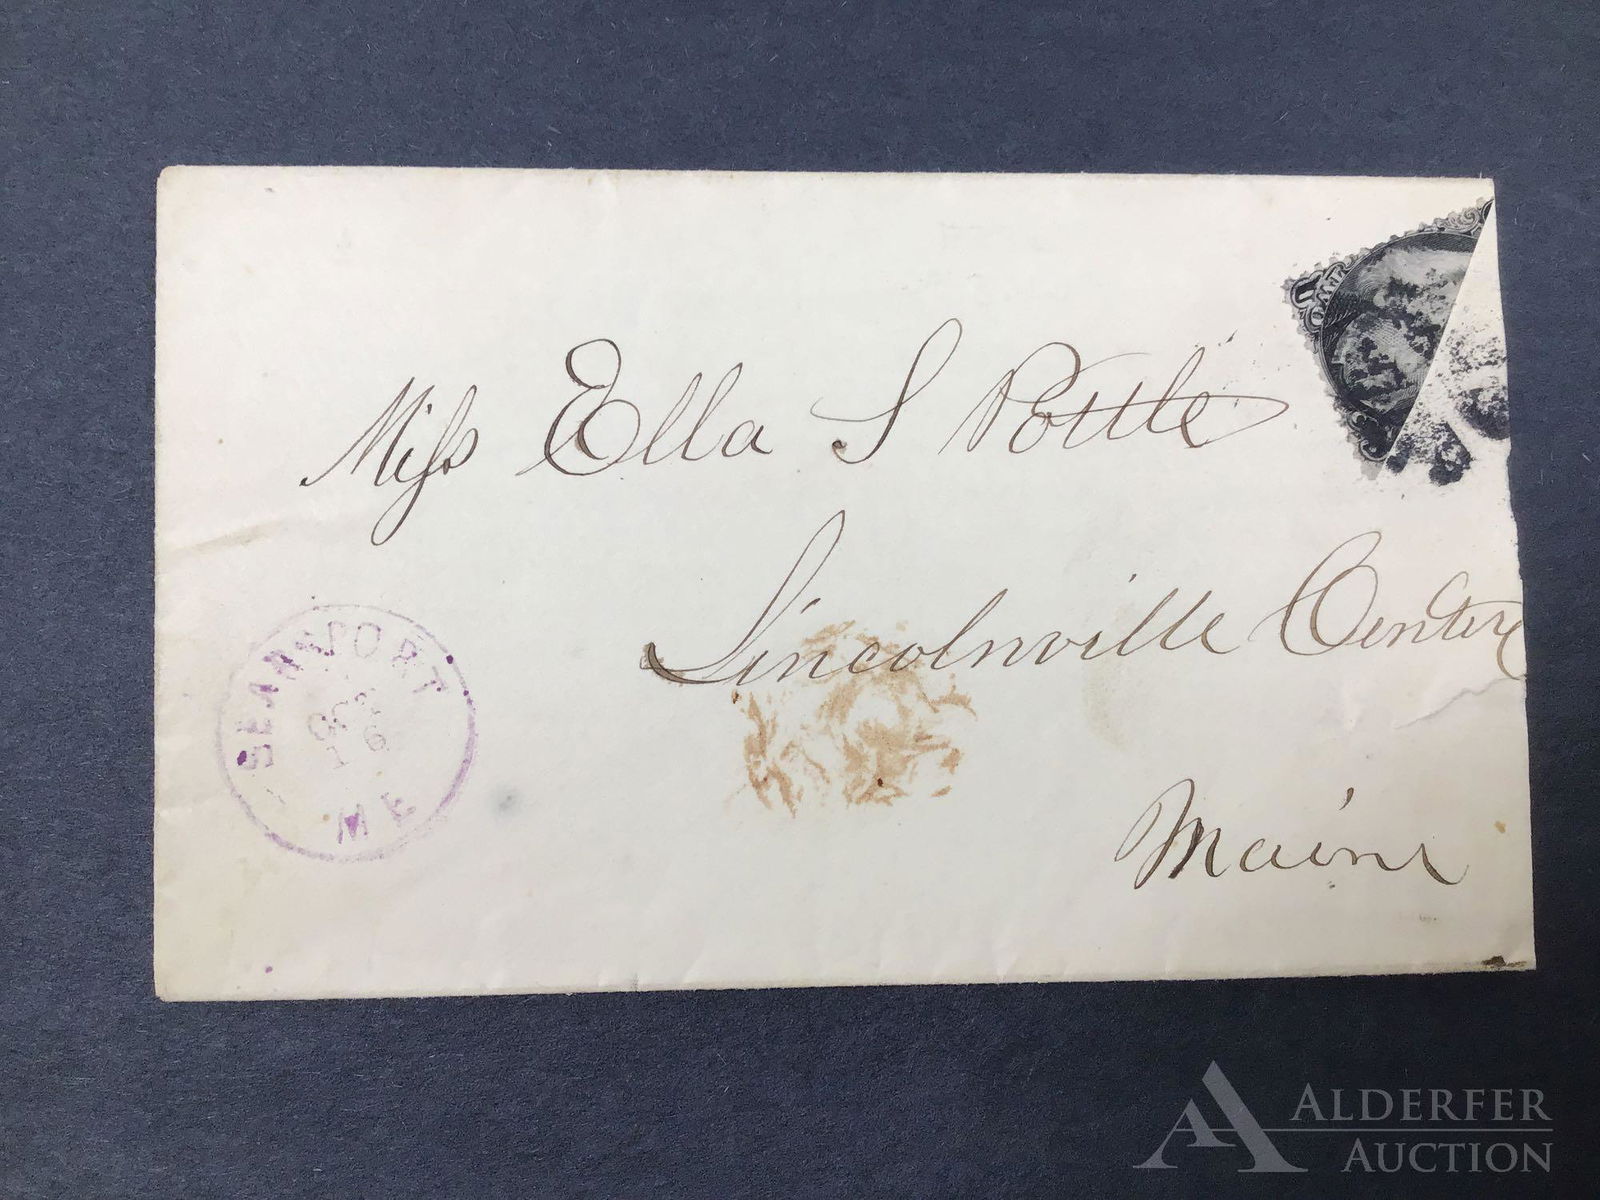 Miss Ella S Pottle
Lincolnville Centre
Maine
SEARSPORT
OCT
16
ME
ALDERFER
AUCTION